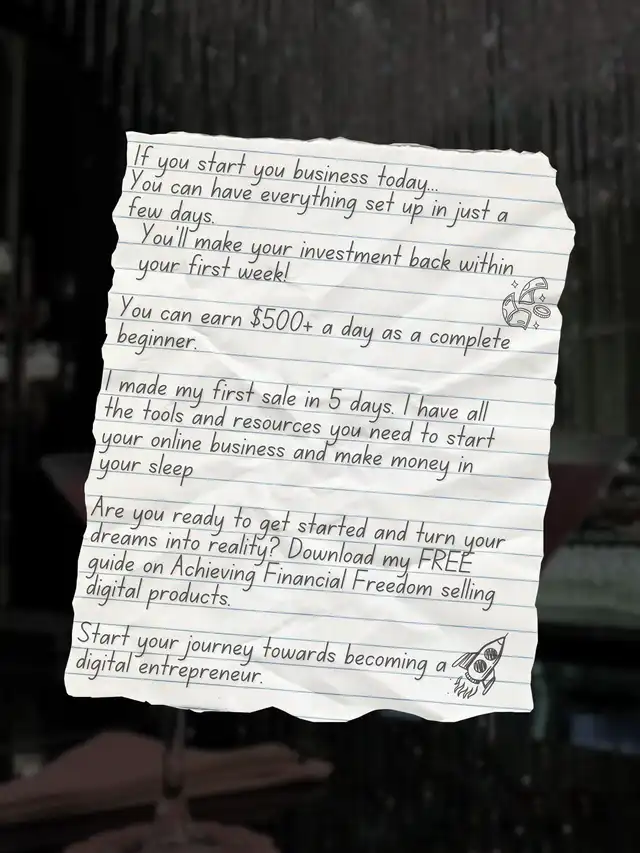 If you start you business today...
You can have everything set up in just a
few days.
You'll make your investment back within
your first week!
You can earn $500+ a day as a complete
beginner.
I made my first sale in 5 days. I have all
the tools and resources you need to start
your online business and make money in
your sleep
Are you ready to get started and turn your
dreams into reality? Download my FREE
guide on Achieving Financial Freedom selling
digital products.
Start your journey towards becoming a
digital entrepreneur.